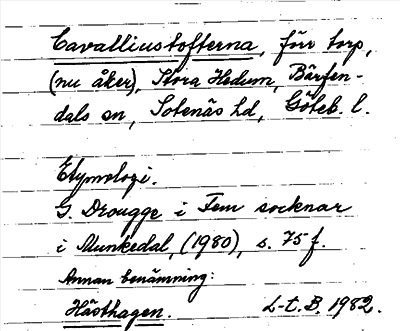 Cavalliustofterna, förr torp,
(nu åker), Stora Hedum, Bärfen-
dals sn, Sotenäs hd, Göteb. l.
Etymologi.
G. Drougge i Fem socknar
i Munkedal, (1980), s. 75 f.
Annan benämning:
Hästhagen.
L-t. B. 1982.